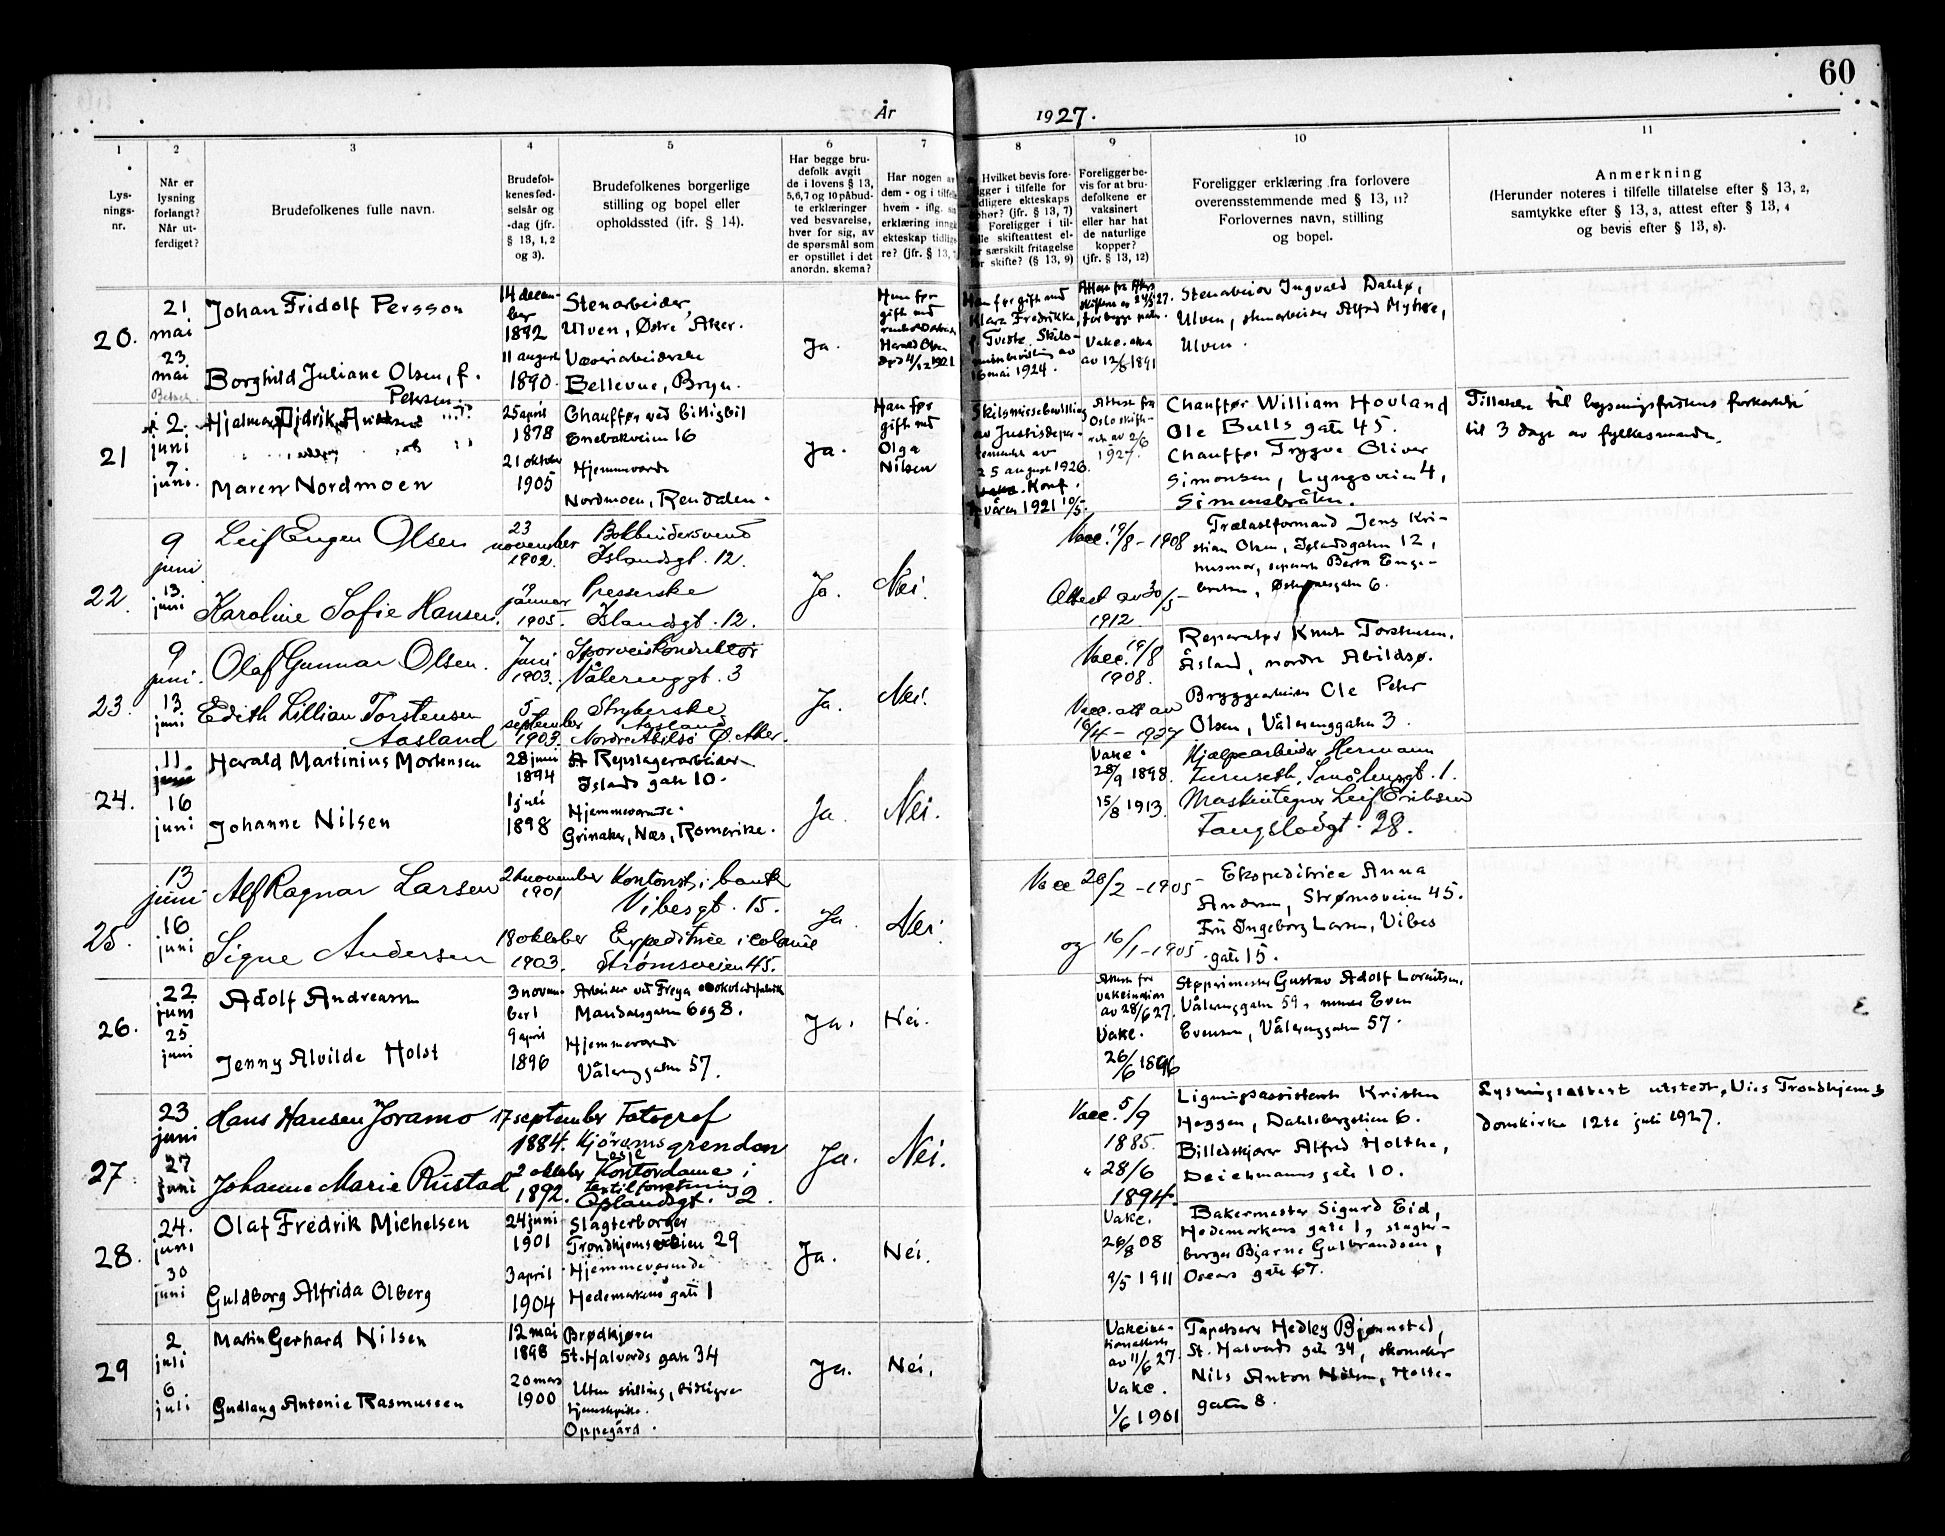 60
År 1927.
1
Lys-
nings-
nr.
2
Når er
lysning
forlangt?
Når ut-
ferdiget?
3
Brudefolkenes fulle navn.
4
Brudefol-
kenes fød-
selsår og
-dag (jfr.
§ 13, 1, 2
og 3).
5
Brudefolkenes borgerlige
stilling og bopel eller
opholdssted (ifr. § 14).
6
Har begge bru-
defolk avgit
de i lovens § 13,
5,6,7 og 10 påbud-
te erklæringer
ved besvarelse,
hver for sig, av
de spørsmål som
er opstillet i det
anordn. skema?
7
Har nogen av
dem - og i tilfelle
hvem - iflg. sin
erklæring inngått
ekteskap tidlige-
re? (jfr. § 13,
8
Hvilket bevis fore-
ligger i tilfelle for
tidligere ekteskaps
ophør? (jfr. § 13, 7)
Foreligger i til-
felle skifteattest el-
ler særskilt fritagelse
for skifte? (§ 13, 9)
9
Foreligger be-
vis for at bru-
defolkene er
vaksinert
eller har hat
de naturlige
kopper?
(jfr. § 13, 12)
10
Foreligger erklæring fra forlovere
overensstemmende med § 13, 11?
Forlovernes navn, stilling
og bopel.
11
Anmerkning
(Herunder noteres i tilfelle tillatelse efter § 13, 2,
samtykke efter § 13, 3, attest efter § 13, 4
og bevis efter § 13, 8).
20.
21
mai
23
mai
Johan Fridolf Persson
Borghild Juliane Olsen, f.
Petersen
14 decem-
ber
1892
11 august
1890.
Stenarbeider
Ulven, Østre Aker.
Væveriarbeiderske
Bellevue, Bryn.
Ja.
Han før
gift med
Harald Olsen
død 4/12 1921
Han før gift med
Klara Fredrikke,
f. Tveite. Skils-
av
16 mai 1924.
Attest fra Akers
Vake. atta
av 12/8 1891
Stenarbeider Ingvald Dahlbø,
Ulven, stenarbeider Alfred Myhre,
Ulven.
21
2.
juni
7.
juni.
Hjalmar Didrik
Maren Nordmoen
25 april
1878
21 oktober
1905
Chauffør ved Billigbil
Enebakveien 16
Hjemmeværende
Nordmoen, Rendalen.
Ja.
Han før
gift med
Olga
Nilsen
Skilsmissebevilling
av Justisdepar-
tementet av
25 august 1926.
Vake. Konf.
våren 1921 10/5-
Attest fra
Oslo skifte-
ret av 2/6
1927.
Chauffør William Hovland
Ole Bulls gate 45.
Chauffør Trygve Oliver
Simonsen, Lyngveien 4,
Simensbråten.
Tillatelse til lysningsfristens forkortelse
til 3 dage av fylkesmanden.
22.
9
juni
13.
juni
Leif Eugen Olsen
Karoline Sofie Hansen.
23
november
1902.
9
januar
1905-
Bokbindersvend
Islandsgt. 12.
Presserske
Islandsgt. 12.
Ja.
Nei.
Vacc. 19/8-1908
Attest av 30/5-
1912
Trælastformand Jens Kri-
stian Olsen, Islandsgaten 12,
husmor, separerte Berta Enge-
bretsen, gaten 6.
23.
9
juni.
13
juni
Olaf Gunnar Olsen.
Edith Lillian Torstensen
Aasland
7
juni
1903.
5
september
1903.
Sporveiskonduktør
Vålerenggt. 3
Stryberske
Aasland
Nordre Abilsø Ø. Aker.
Ja.
Nei.
Vacc. 19/8
1908.
Vacc. att av
16/4-1927
Reparatør Knut Torstensen.
Åsland, nordre Abildsø.
Bryggearbeider Ole Peter
Olsen, Vålerenggaten 3.
24.
11.
juni
16
juni
Harald Martinius Mortensen
Johanne Nilsen
28 juni
1894
1 juli
1898
Repslagerarbeider
Islands gate 10.
Hjemmeværende.
Grinaker, Næs, Romerike.
Ja.
Nei.
Vake.
28/9 1898.
15/8 1913
Hjælpearbeider Hermann
Furuseth, Smålensgt. 1.
Maskintegner Leif Eriksen
Fauglodgt. 28.
25.
13
juni
16
juni
Alf Ragnar Larsen
Signe Andersen
2 november
1901
18 oktober
1903.
Kontorist i bank
Vibesgt. 15.
Expeditrice i colonie
Strømsveien 45.
Ja.
Nei.
Vacc 26/2-1905-
og 16/1-1905
Ekspeditrice Anna
Andersen, Strømsveien 45.
Frü Ingeborg Larsen, Vibes
gate 15.
26.
22
juni
25
juni
Adolf Andreassen
Jenny Alvilde Holst
3 novem-
ber 1
9 april
1896
Arbeider ved Freya chokoladefabrik
Mandalsgaten 6 og 8.
Hjemmeværende
Vålerenggaten 57.
Ja.
Nei.
Attest fra
vakcination
av 28/6 27.
Vake.
26/6 1896
Støperimester Gustav Adolf Lorentsen,
Vålerenggaten 59, murer Even
Evensen, Vålerenggaten 57.
27.
23
juni
27
juni
Hans Hansen Joramo
Johanne Marie Rustad
17 september
1884.
2 oktober
1892.
Fotograf
Kjöremsgrenden
Lesje
Kontordame i
textilforretning
Oplandsgt. 2.
Ja.
Nei.
Vacc. 5/9
1885.
" 28/6
1894
Ligningsassistent Kristen
Heggen, Dahlsbergstien 6.
Billedskjærer Alfred Holthe,
Deichmanns gate 10.
Lysningsattest utstedt, Vies Trondhjems
domkirke 12te juli 1927.
28.
24.
juni
30
juni
Olaf Fredrik Michelsen
Guldborg Alfrida Olberg
24 juni
1901
3 april
1904
Slagterborger
Trondhjemsveien 29
Hjemmeværende
Hedemarkens gate 1
Ja.
Nei.
Vake.
26/8 08
9/5 1911
Bakermester Sigurd Eid,
Hedemarkens gate 1, slagter-
borger Bjarne Gulbrandsen,
Oscars gate 67.
29
2
juli
6
juli
Martin Gerhard Nilsen
Gudlaug Antonie Rasmussen
12 mai
1898
20 mars
1900
Brødkjører
St. Halvards gate 34
Uten stilling, tidligere
Oppegård.
Ja.
Nei.
Vakcina-
tionsattest
av 11/6 27.
Vake.
1/6 1901
Tapetserer Hedley Bjønnstad,
St. Halvards gate 34, skomaker
Nils Anton Nilsen, Holte-
gaten 8.